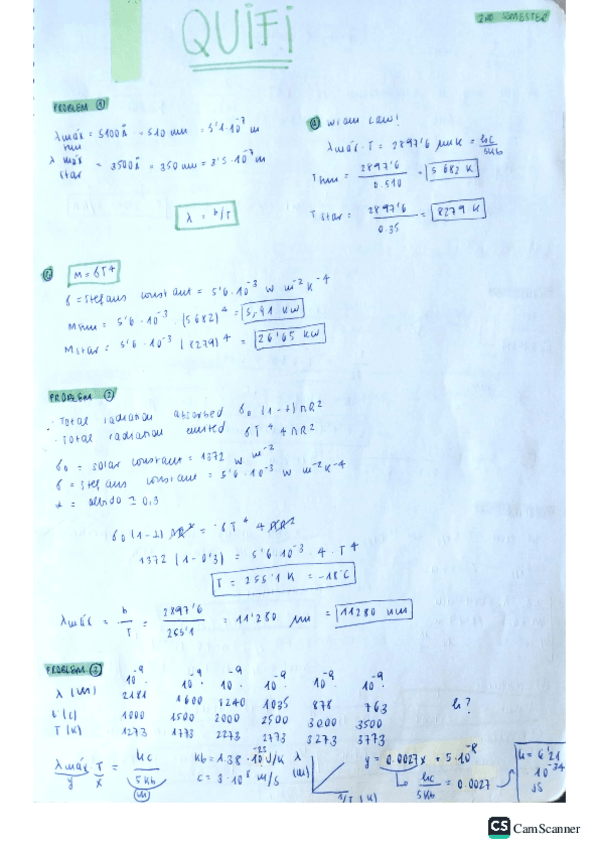 QUIFI
2ND SEMESTER
PROBLEM ①
λmáx sun = 5100Å = 510 nm = 5'1·10⁻⁷ m
λ máx star = 3500Å = 350 nm = 3'5·10⁻⁷ m
λ = b/T
ⓐ Wien law!
λmáx·T = 2897'6 μm K = hc/5Kb
T sun = 2897'6/0.510 = 5682 K
T star = 2897'6/0.35 = 8279 K
M = σT⁴
σ = Stefans constant = 5'6·10⁻³ W m⁻² K⁻⁴
M sun = 5'6·10⁻³·(5682)⁴ = 5,91 KW
M star = 5'6·10⁻³ (8279)⁴ = 26'65 KW
PROBLEM ②
· Total radiation absorbed σ₀ (1-α)πR²
· Total radiation emitted σT⁴ 4πR²
σ₀ = solar constant = 1372 W m⁻²
σ = Stefans constant = 5'6·10⁻³ W m⁻²K⁻⁴
α = albido ≃ 0,3
σ₀ (1-α) πR² = σT⁴ 4πR²
1372 (1-0'3) = 5'6·10⁻³·4·T⁴
T = 255'1 K = -18°C
λmáx = b/T = 2897'6/255'1 = 11'280 μm = 11280 nm
PROBLEM ③
10⁻⁹ 10⁻⁹ 10⁻⁹ 10⁻⁹ 10⁻⁹ 10⁻⁹
λ (m) 2181 1600 1240 1035 878 763
t (c) 1000 1500 2000 2500 3000 3500
T (K) 1273 1773 2273 2773 3273 3773
h?
λmáx/y T/x = hc/5Kb (m)
Kb = 1.38·10⁻²³ J/K
c = 3·10⁸ m/s
λ (m)
1/T (K)
y = 0.0027x + 5·10⁻⁸
hc/5Kb = 0.0027
h = 6'21 · 10⁻³⁴ JS
CS CamScanner